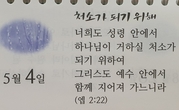 처소가 되기 위해
너희도 성령 안에서
하나님이 거하실 처소가
되기 위하여
그리스도 예수 안에서
함께 지어져 가느니라
(엡 2:22)
5월 4일